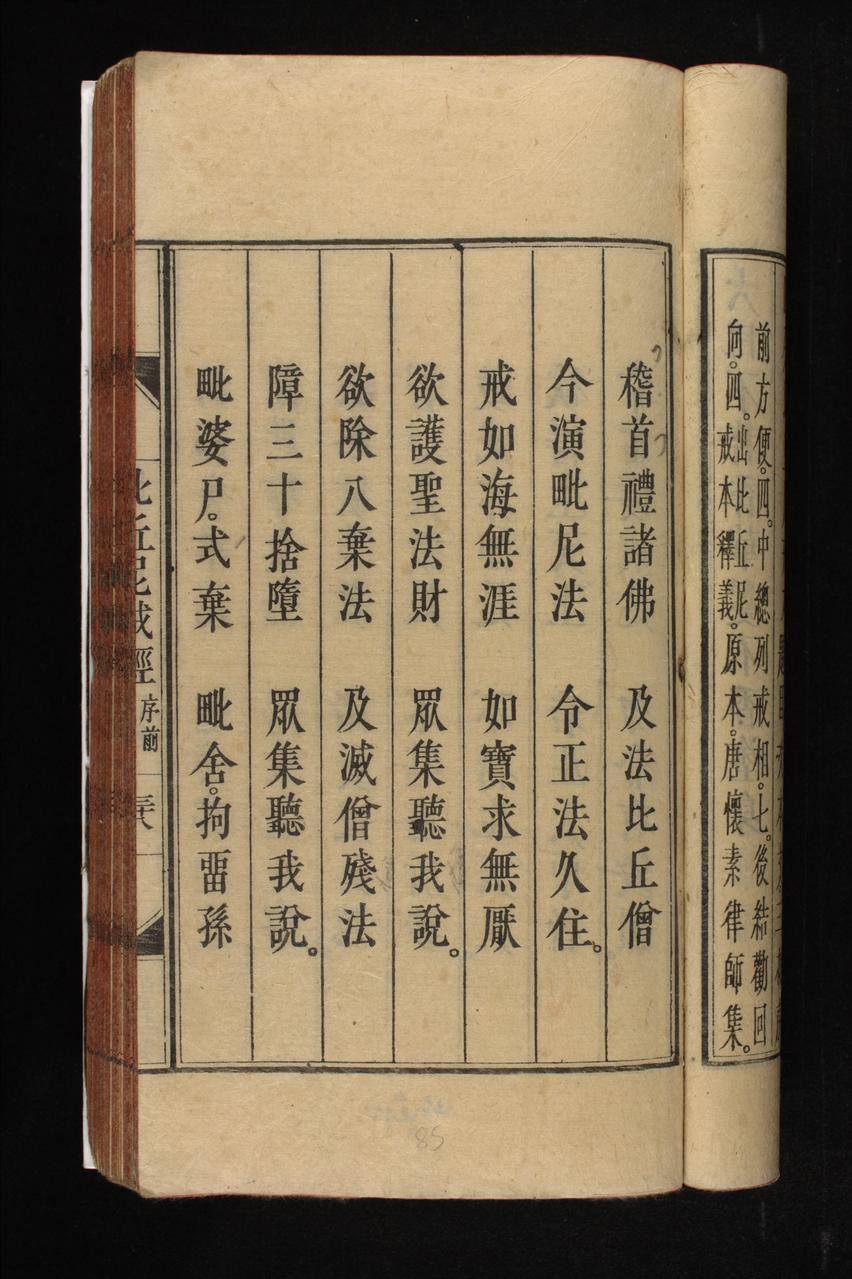 前方便。四。中總列戒相。七。後結勸回
向。四。出比丘尼戒本釋義。原本。唐懷素律師集。
稽首禮諸佛　及法比丘僧
今演毗尼法　令正法久住。
戒如海無涯　如寶求無厭
欲護聖法財　眾集聽我說。
欲除八棄法　及滅僧殘法
障三十捨墮　眾集聽我說。
毗婆尸。式棄　毗舍。拘畱孫
比丘尼戒經 序前